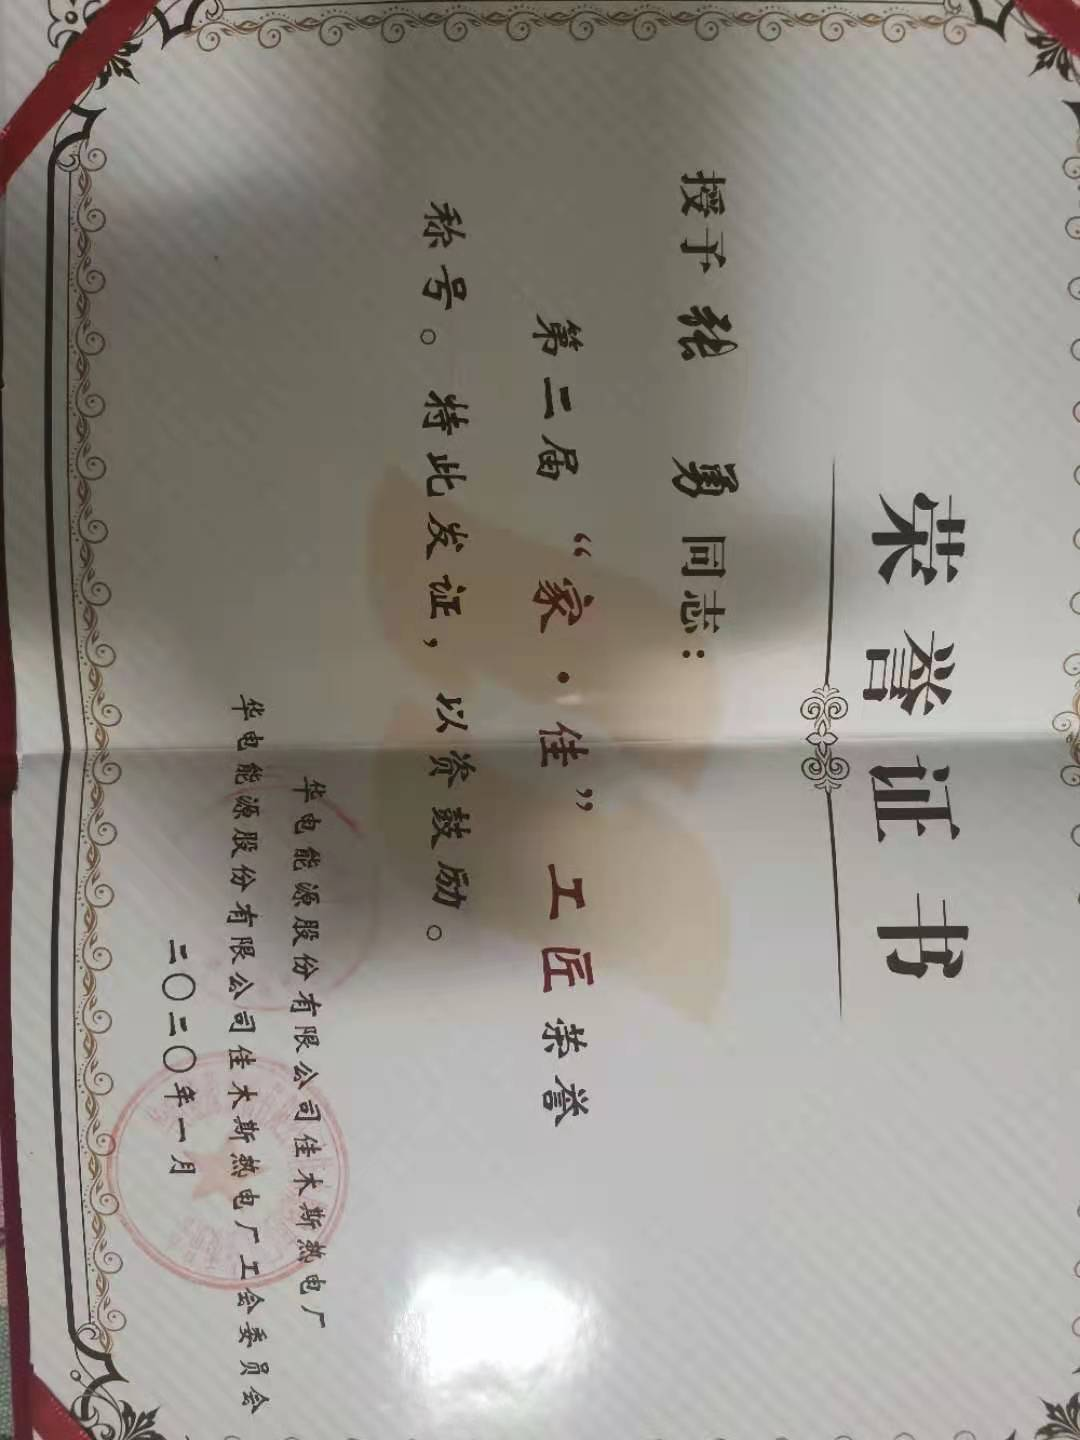 荣誉证书
授予张 勇同志：
第二届“家·佳”工匠荣誉
称号。特此发证，以资鼓励。
华电能源股份有限公司佳木斯热电厂
华电能源股份有限公司佳木斯热电厂工会委员会
二〇二〇年一月